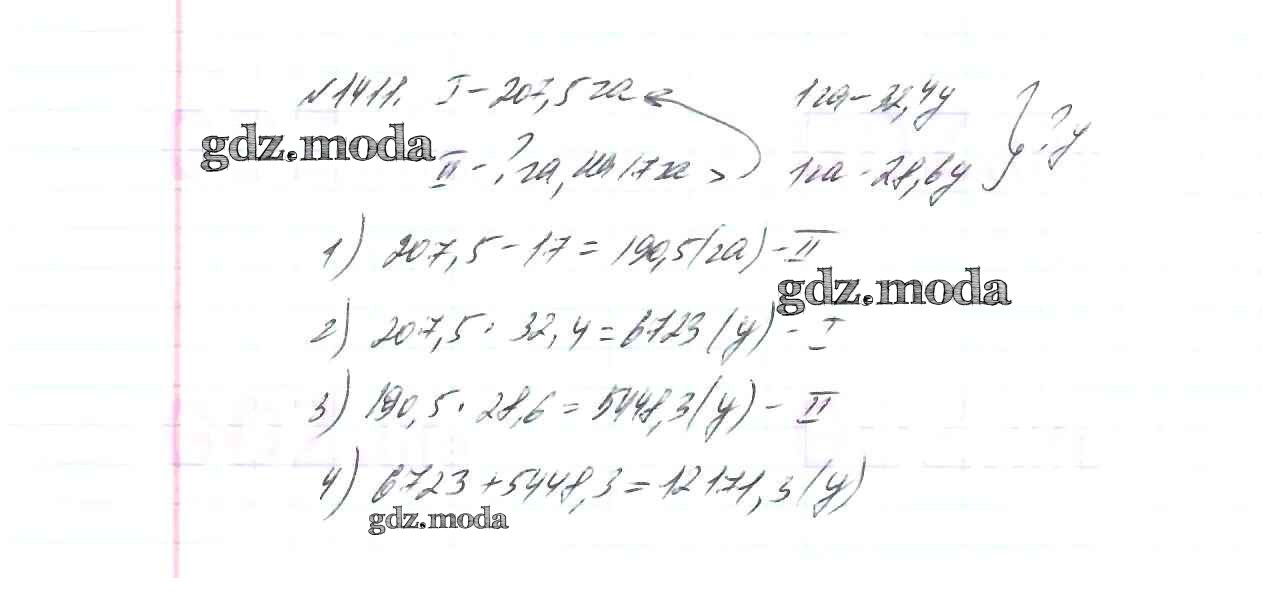 №1411. I - 207,5 га 1 га - 32,4 ц
gdz.moda
II - ? га, на 17 га > 1 га - 28,6 ц } ? ц
1) 207,5 - 17 = 190,5 (га) - II
gdz.moda
2) 207,5 · 32,4 = 6723 (ц) - I
3) 190,5 · 28,6 = 5448,3 (ц) - II
4) 6723 + 5448,3 = 12171,3 (ц)
gdz.moda